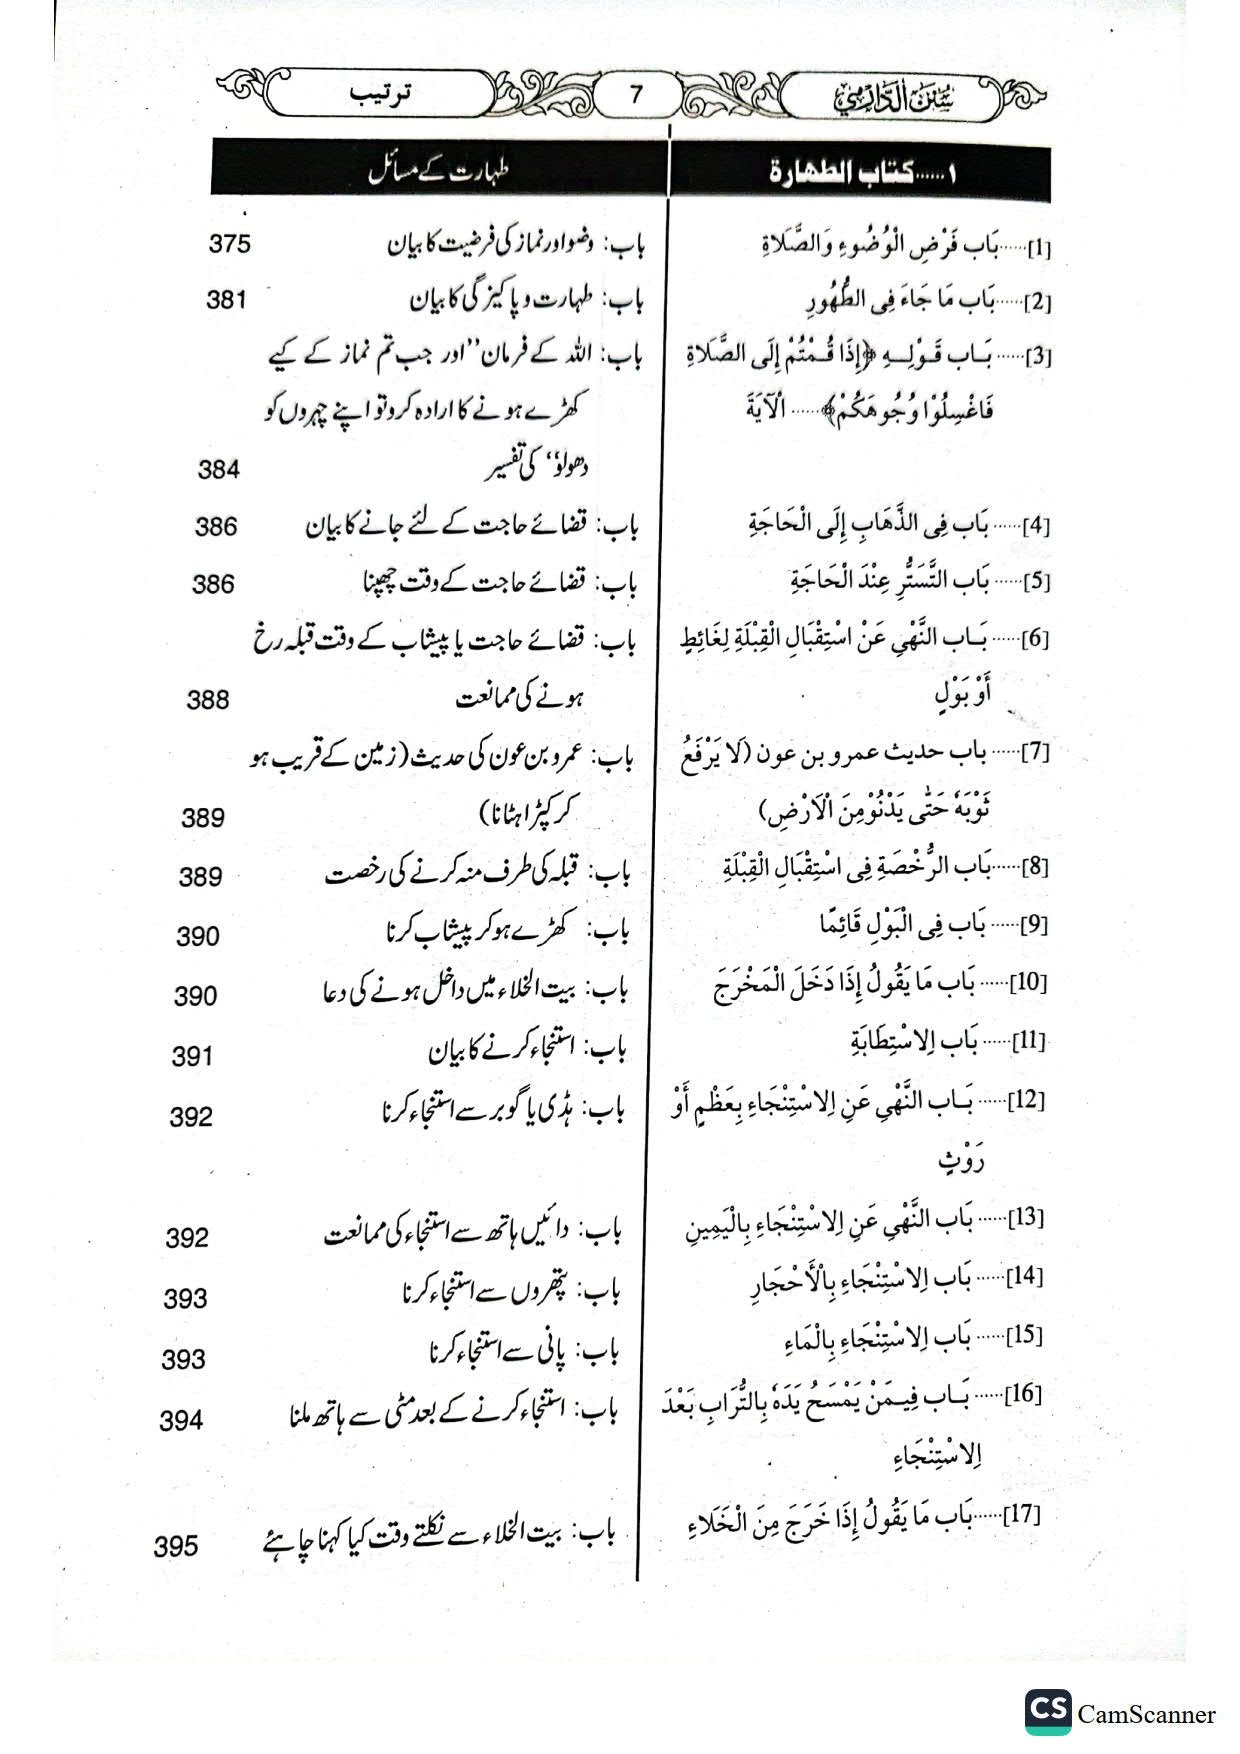 سُنَن الدَّارمِي 7 ترتیب
۱……کتاب الطهارة طہارت کے مسائل
[1]……بَاب فَرْضِ الْوُضُوءِ وَالصَّلَاةِ باب: وضو اور نماز کی فرضیت کا بیان 375
[2]……بَاب مَا جَاءَ فِی الطُّهُورِ باب: طہارت و پاکیزگی کا بیان 381
[3]……بَاب قَوْلِهِ ﴿إِذَا قُمْتُمْ إِلَی الصَّلَاةِ باب: اللہ کے فرمان ’’اور جب تم نماز کے لیے
فَاغْسِلُوْا وُجُوهَكُمْ﴾…… الْآيَةَ کھڑے ہونے کا ارادہ کرو تو اپنے چہروں کو
دھولو‘‘ کی تفسیر 384
[4]……بَاب فِی الذَّهَابِ إِلَی الْحَاجَةِ باب: قضائے حاجت کے لئے جانے کا بیان 386
[5]……بَاب التَّسَتُّرِ عِنْدَ الْحَاجَةِ باب: قضائے حاجت کے وقت چھپنا 386
[6]……بَاب النَّهْیِ عَنْ اسْتِقْبَالِ الْقِبْلَةِ لِغَائِطٍ باب: قضائے حاجت یا پیشاب کے وقت قبلہ رخ
أَوْ بَوْلٍ ہونے کی ممانعت 388
[7]……باب حدیث عمرو بن عون (لَا یَرْفَعُ باب: عمرو بن عون کی حدیث (زمین کے قریب ہو
ثَوْبَهٗ حَتّٰی یَدْنُوْ مِنَ الْاَرْضِ) کر کپڑا ہٹانا) 389
[8]……بَاب الرُّخْصَةِ فِی اسْتِقْبَالِ الْقِبْلَةِ باب: قبلہ کی طرف منہ کرنے کی رخصت 389
[9]……بَاب فِی الْبَوْلِ قَائِمًا باب: کھڑے ہو کر پیشاب کرنا 390
[10]……بَاب مَا يَقُولُ إِذَا دَخَلَ الْمَخْرَجَ باب: بیت الخلاء میں داخل ہونے کی دعا 390
[11]……بَاب اِلاسْتِطَابَةِ باب: استنجاء کرنے کا بیان 391
[12]……بَاب النَّهْیِ عَنِ اِلاسْتِنْجَاءِ بِعَظْمٍ أَوْ باب: ہڈی یا گوبر سے استنجاء کرنا 392
رَوْثٍ
[13]……بَاب النَّهْیِ عَنِ اِلاسْتِنْجَاءِ بِالْیَمِینِ باب: دائیں ہاتھ سے استنجاء کی ممانعت 392
[14]……بَاب اِلاسْتِنْجَاءِ بِالْأَحْجَارِ باب: پتھروں سے استنجاء کرنا 393
[15]……بَاب اِلاسْتِنْجَاءِ بِالْمَاءِ باب: پانی سے استنجاء کرنا 393
[16]……بَاب فِیمَنْ یَمْسَحُ یَدَهٗ بِالتُّرَابِ بَعْدَ باب: استنجاء کرنے کے بعد مٹی سے ہاتھ ملنا 394
اِلاسْتِنْجَاءِ
[17]……بَاب مَا يَقُولُ إِذَا خَرَجَ مِنَ الْخَلَاءِ باب: بیت الخلاء سے نکلتے وقت کیا کہنا چاہئے 395
CS CamScanner